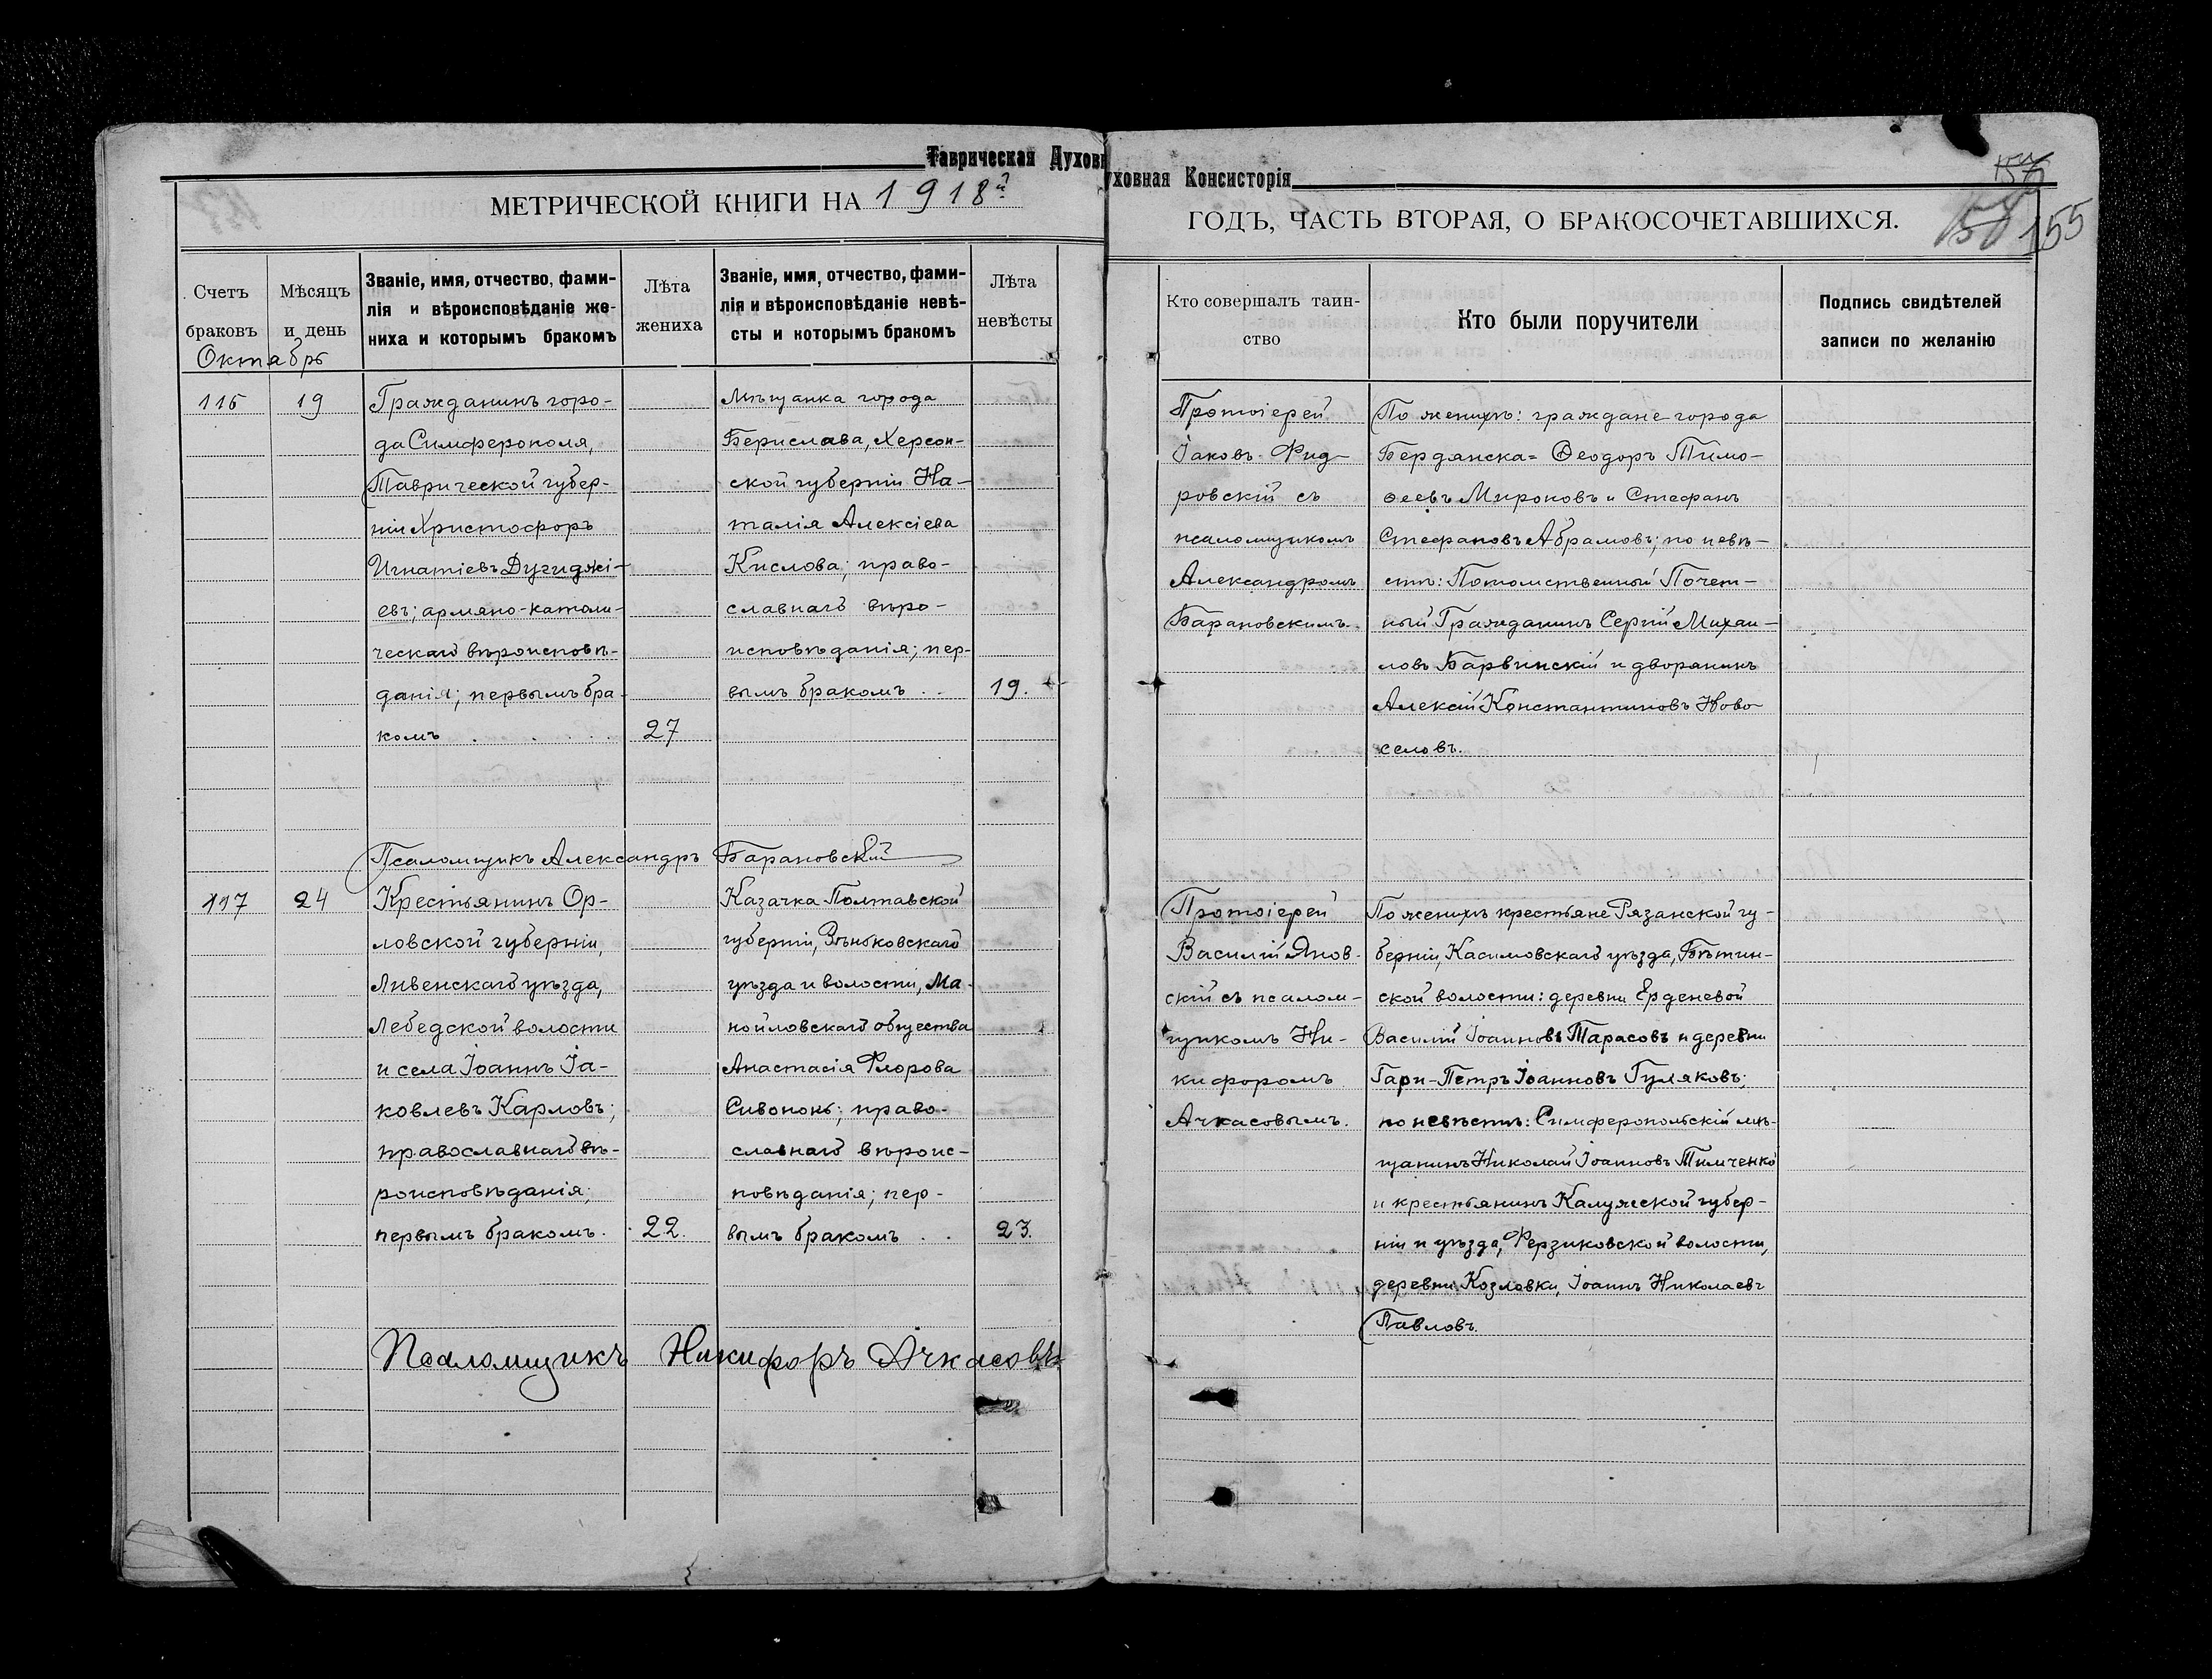 Таврическая Духовная Консисторія
МЕТРИЧЕСКОЙ КНИГИ НА 1918й
ГОДЪ, ЧАСТЬ ВТОРАЯ, О БРАКОСОЧЕТАВШИХСЯ.
155
Счетъ браковъ
Мѣсяцъ и день
Званіе, имя, отчество, фами-
лія и вѣроисповѣданіе же-
ниха и которымъ бракомъ
Лѣта жениха
Званіе, имя, отчество, фами-
лія и вѣроисповѣданіе невѣ-
сты и которымъ бракомъ
Лѣта невѣсты
Кто совершалъ таин-
ство
Кто были поручители
Подпись свидѣтелей
записи по желанію
Октябрь
116
19
Гражданинъ горо-
да Симферополя,
Таврической губер-
ніи Христофоръ
Игнатіевъ Дугиджі-
евъ; армяно-католи-
ческаго вѣроисповѣ-
данія; первымъ бра-
комъ
27
Мѣщанка города
Берислава, Херсон-
ской губерніи На-
талія Алексіева
Кислова; право-
славнаго вѣро-
исповѣданія; пер-
вымъ бракомъ
19.
Протоіерей
Іаковъ
ровскій съ
псаломщикомъ
Александромъ
Барановскимъ.
По женихѣ: граждане города
Бердянска= Ѳеодоръ Тимо-
ѳеевъ Мироновъ и Стефанъ
Стефановъ Абрамовъ; по невѣ-
стѣ: Потомственный Почет-
ный Гражданинъ Сергій Михаи-
ловъ Барвинскій и дворянинъ
Алексій Константиновъ Ново-
селовъ.
Псаломщикъ Александръ Барановскій
117
24
Крестьянинъ Ор-
ловской губерніи,
Ливенскаго уѣзда,
Лебедской волости
и села Іоаннъ Іа-
ковлевъ Карловъ;
православнаго вѣ-
роисповѣданія;
первымъ бракомъ.
22
Казачка Полтавской
губерніи, Зѣньковскаго
уѣзда и волости, Ма-
нойловскаго общества
Анастасія Флорова
Сивоконь; право-
славнаго вѣроис-
повѣданія; пер-
вымъ бракомъ
23.
Протоіерей
Василій Янов-
скій съ псалом-
щикомъ Ни-
кифоромъ
Ачкасовымъ.
По женихѣ крестьяне Рязанской гу-
берніи, Касимовскаго уѣзда, Бѣтин-
ской волости: деревни Ерденевой
Василій Іоанновъ Тарасовъ и деревни
Гари-Петръ Іоанновъ Гуляковъ;
по невѣстѣ: Симферопольскій мѣ-
щанинъ Николай Іоанновъ Тимченко
и крестьянинъ Калужской губер-
ніи и уѣзда, Ферзиковской волости,
деревни Козловки, Іоаннъ Николаевъ
Павловъ.
Псаломщикъ Никифоръ Ачкасовъ